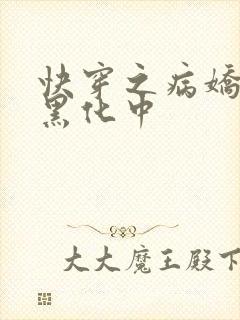 快穿之病嬌
黑化中
大大魔王殿下